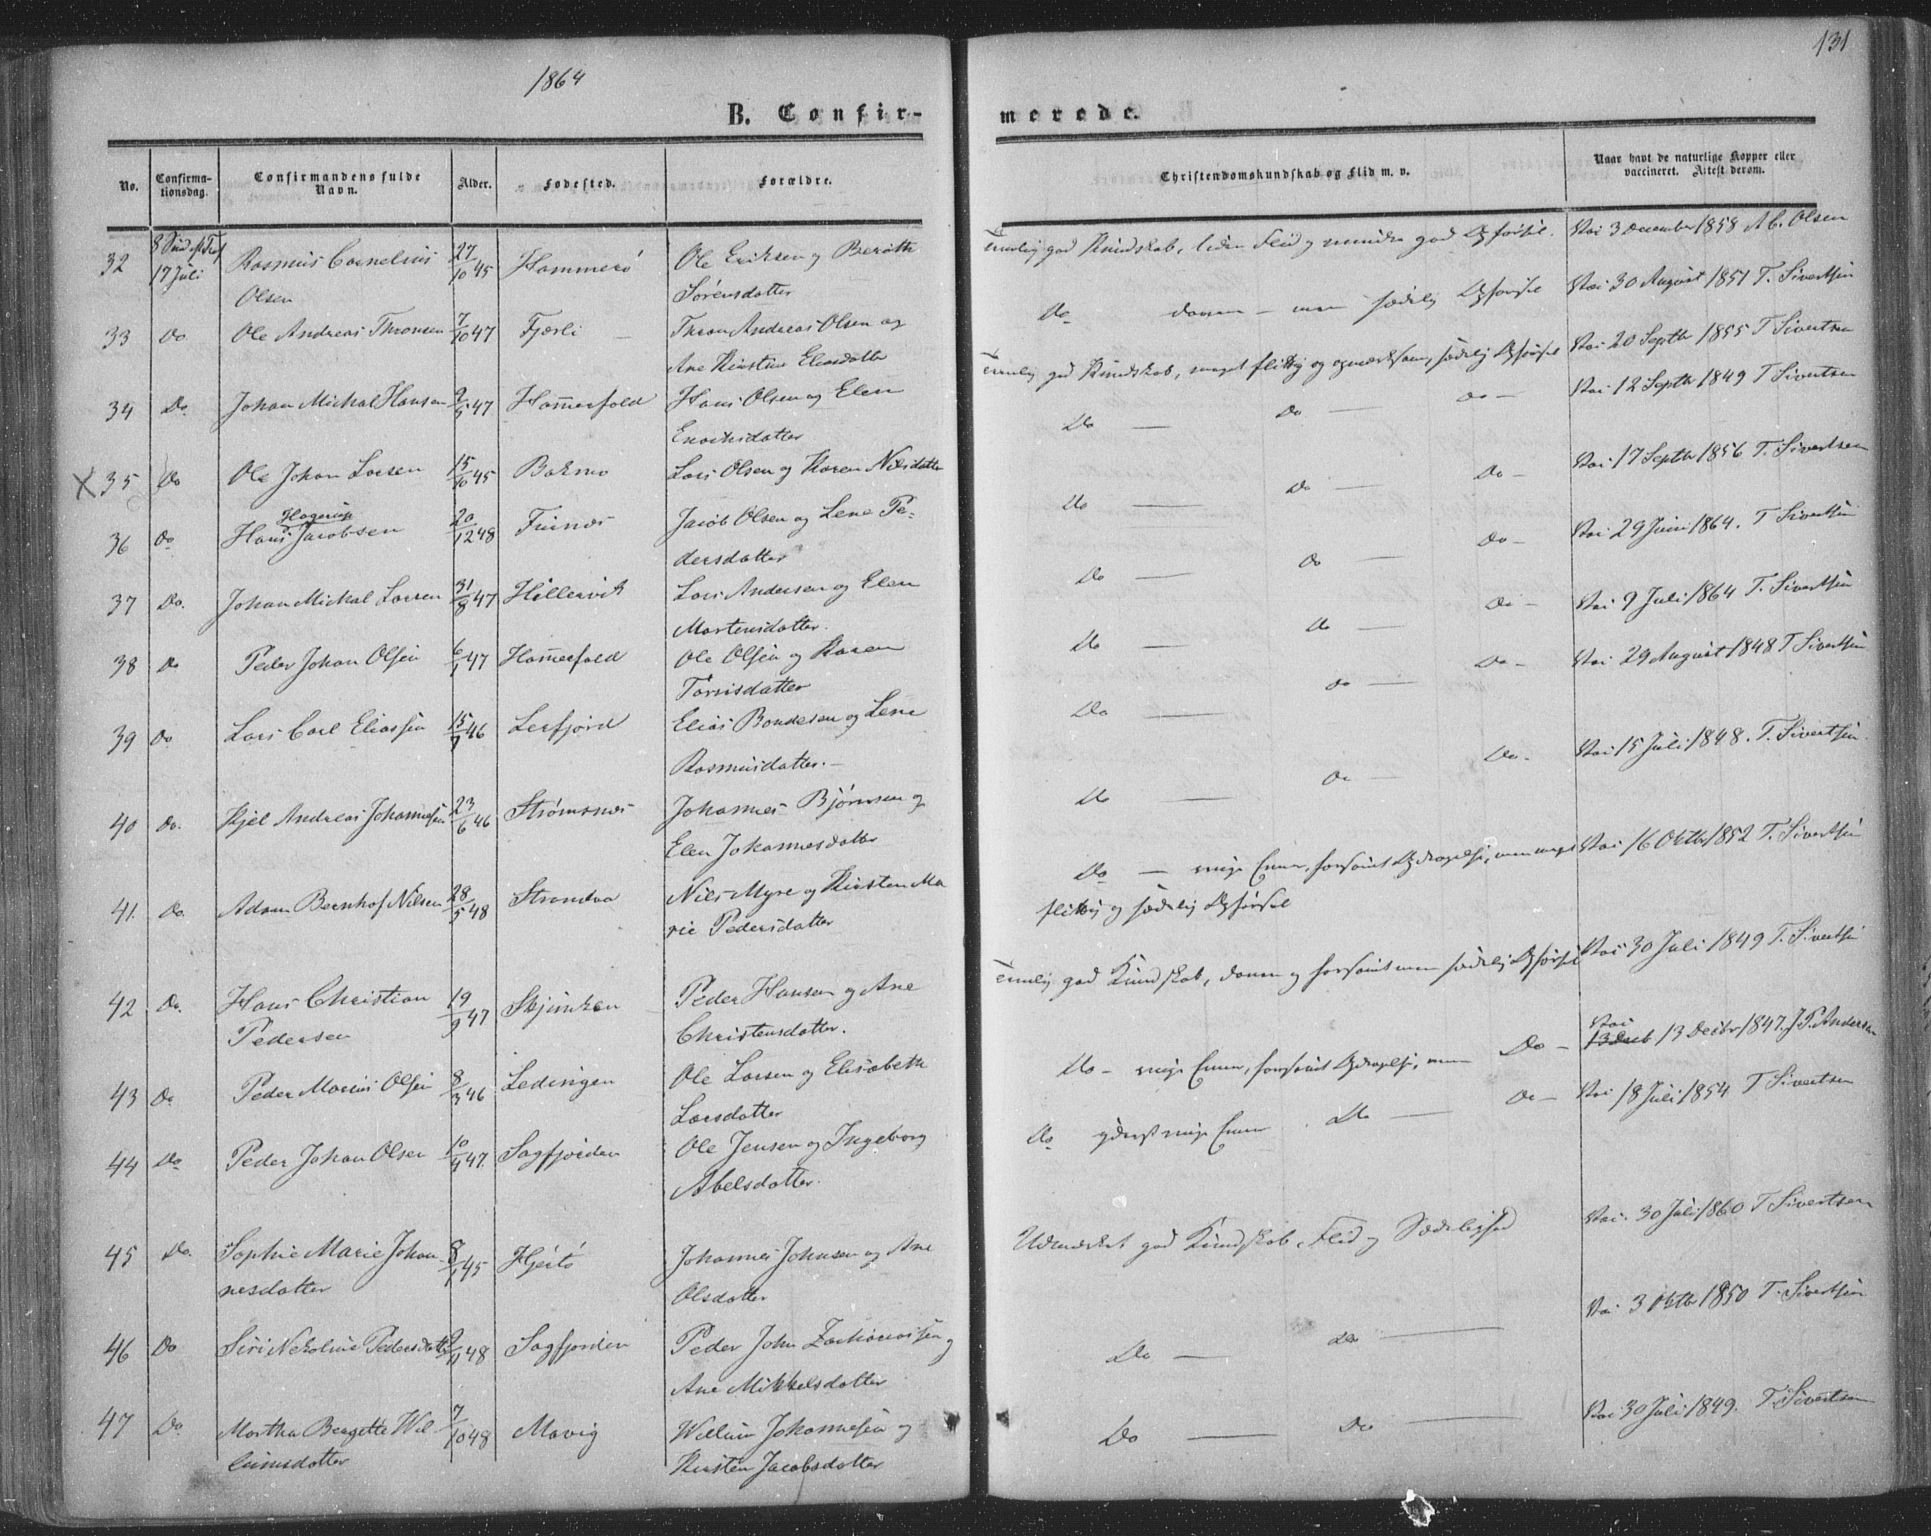 1864
131
B. Confir-
merede.
No.
Confirma-
tionsdag.
Confirmandens fulde
Navn.
Alder.
Fødested.
Forældre.
Christendomskundskab og Flid m. v.
Naar havt de naturlige Kopper eller
vaccineret. Attest derom.
32 17 Juli Rasmus Cornelius 27/10 45 Hammerø Ole Eriksen og Berath
Olsen Sørensdatter
Temlig god Kundskab, liden Flid og mindre god Opførsel. Vac 3 December 1858 A C. Olsen
33 Do Ole Andreas Thronsen 7/10 47 Fjærli Thron Andreas Olsen og
Ane Kirstine Eliasdatter
Do daarn men sædelig Opførsel Vac 30 August 1851 T. Sivertsen
34 Do. Johan Mickal Hansen 2/5 47 Hamerfald Hans Olsen og Elen
Enochsdatter
Temlig god Kundskab, meget flittig og opmærksom, sædelig Opførsel Vac 20 Septb 1855 T Sivertsen
Do — Do — Do — Vac 12 Septb 1849 T Sivertsen
X 35 Do Ole Johan Larsen 15/10 45 Bakmo Lars Olsen og Karen Nilsdatter
Do — Do — Do — Vac 17 Septb 1856 T. Sivertsen
36 Do Hans Hagerup Jacobsen 20/12 48 Furnæs Jacob Olsen og Lene Pe-
dersdatter
Do — Do — Do — Vac 29 Juni 1864. T Sivertsen
37 Do. Johan Mickal Larsen 31/8 47 Hillervik Lars Andersen og Elen
Mortensdatter.
Do — Do — Do — Vac 9 Juli 1864 T. Sivertsen
38 Do Peder Johan Olsen 6/1 47 Hamerfald Ole Olsen og Karen
Tørrisdatter
Do — Do — Do — Vac 29 August 1848 T Sivertsen
39 Do Lars Carl Eliassen 15/7 46 Leefjord Elias Bondesen og Lene
Rasmusdatter.
Do — Do — Do. Vac 15 Juli 1848. T. Sivertsen.
40 Do. Kjel Andreas Johannesen 23/6 46 Strømsnes Johannes Bjørnsen og
Elen Johannesdatter
Do — ringe Evner, forsømt Opdragelse, men meget Vac 16 Oktb 1852 T. Sivertsen
flittig og sædelig Opførsel
41. Do. Adam Bernhof Nilsen 28/5 48 Strandva Nils Myre og Kirsten Ma
rie Pedersdatter
Temlig god Kundskab, daarn og forsømt men sædelig Opførsel Vac 30 Juli 1849 T. Sivertsen
42 Do. Hans Christian 19/9 47 Skjunken Peder Hansen og Ane
Pedersen Christensdatter.
Do — ringe Evner, forsømt Opdragelse, men Do — Vac 13 Decbr 1847. J P. Andersen
43 Do Peder Marius Olsen 8/3 46 Ledingen Ole Larsen og Elisabeth
Larsdatter
Do yderst ringe Evner. Do — Do — Vac 18 Juli 1854 T Sivertsen
44 Do Peder Johan Olsen 10/4 47. Sagfjorden Ole Jensen og Ingeborg
Abelsdatter.
45 Do. Sophie Marie Johan 8/1 45 Hjertø Johannes Johnsen og Ane
nesdatter Olsdatter
Udmærket god Kundskab, Flid og Sædelighed Vac. 30 Juli 1860 T Sivertsen
46 Do Siri Nekoline Pedersdatter 2/11 48 Sagfjorden Peder John Zachariassen og
Ane Mikkelsdatter
Do — do — Vac 3 Oktb 1850 T. Sivertsen
47 Do Martha Bergette Wil 7/10 48 Mavig Willum Johannesen og
lumsdatter Kirsten Jacobsdatter
Do — Do — Vac 30 Juli 1849. T. Sivertsen